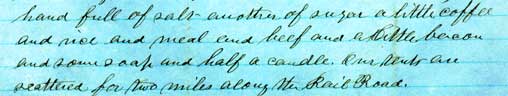 hand full of salt another of sugar a little coffee
and rice and meal and beef and a little bacon
and some soap and half a candle. Our tents are
scattered for two miles along the Rail Road.